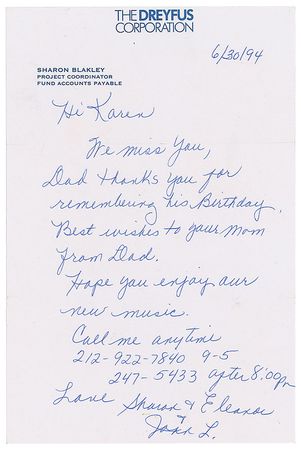 THE DREYFUS
CORPORATION
6/30/94
SHARON BLAKLEY
PROJECT COORDINATOR
FUND ACCOUNTS PAYABLE
Hi Karen
We miss You,
Dad thanks you for
remembering his Birthday.
Best wishes to your Mom
from Dad.
Hope you enjoy our
new music.
Call me anytime
212-922-7840 9-5
247-5433 after 8:00pm
Love Sharon & Eleanor
+
John L.